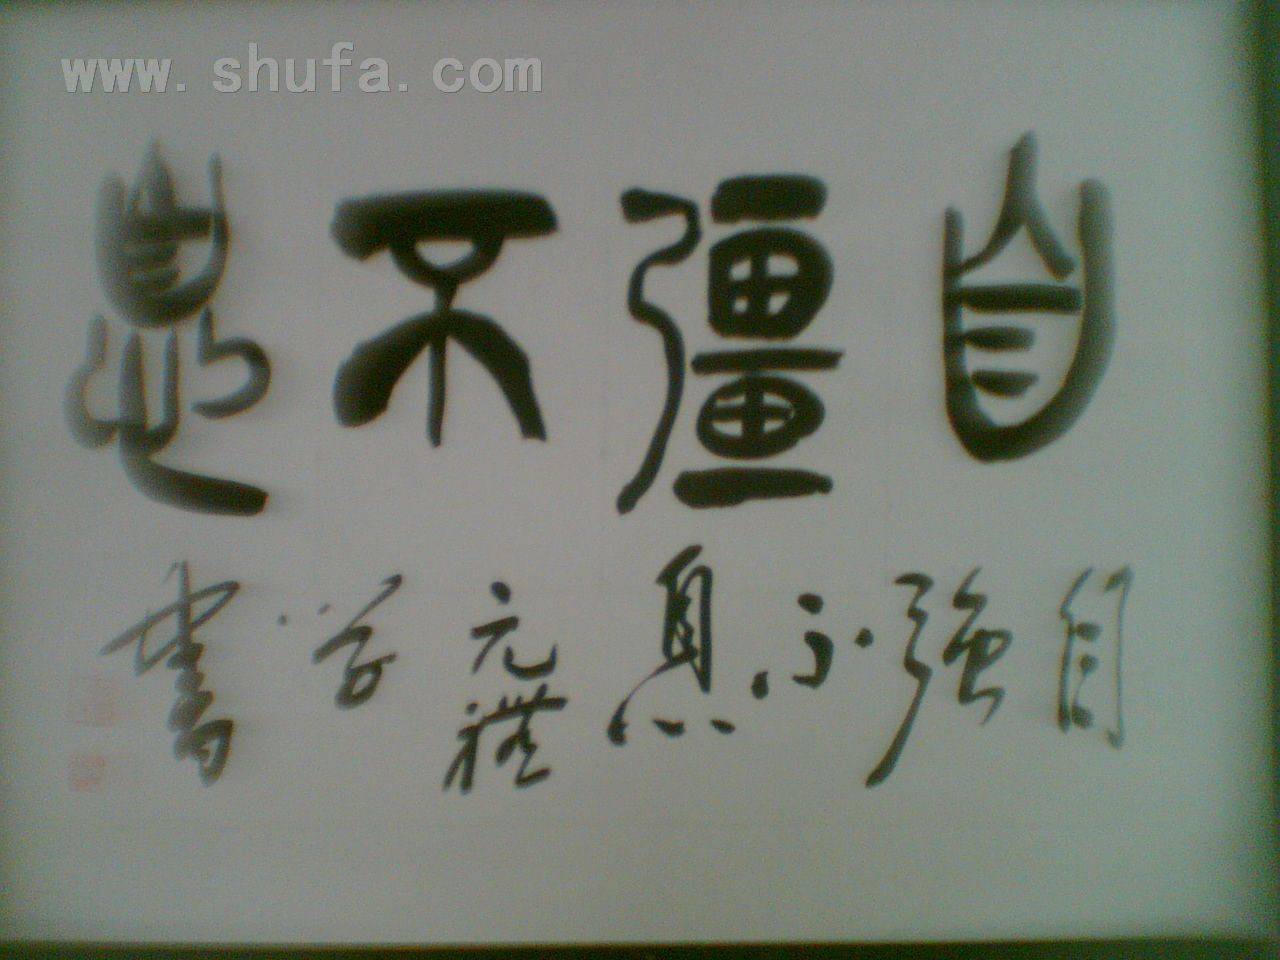 www.shufa.com
自彊不息
自強不息元禮學書